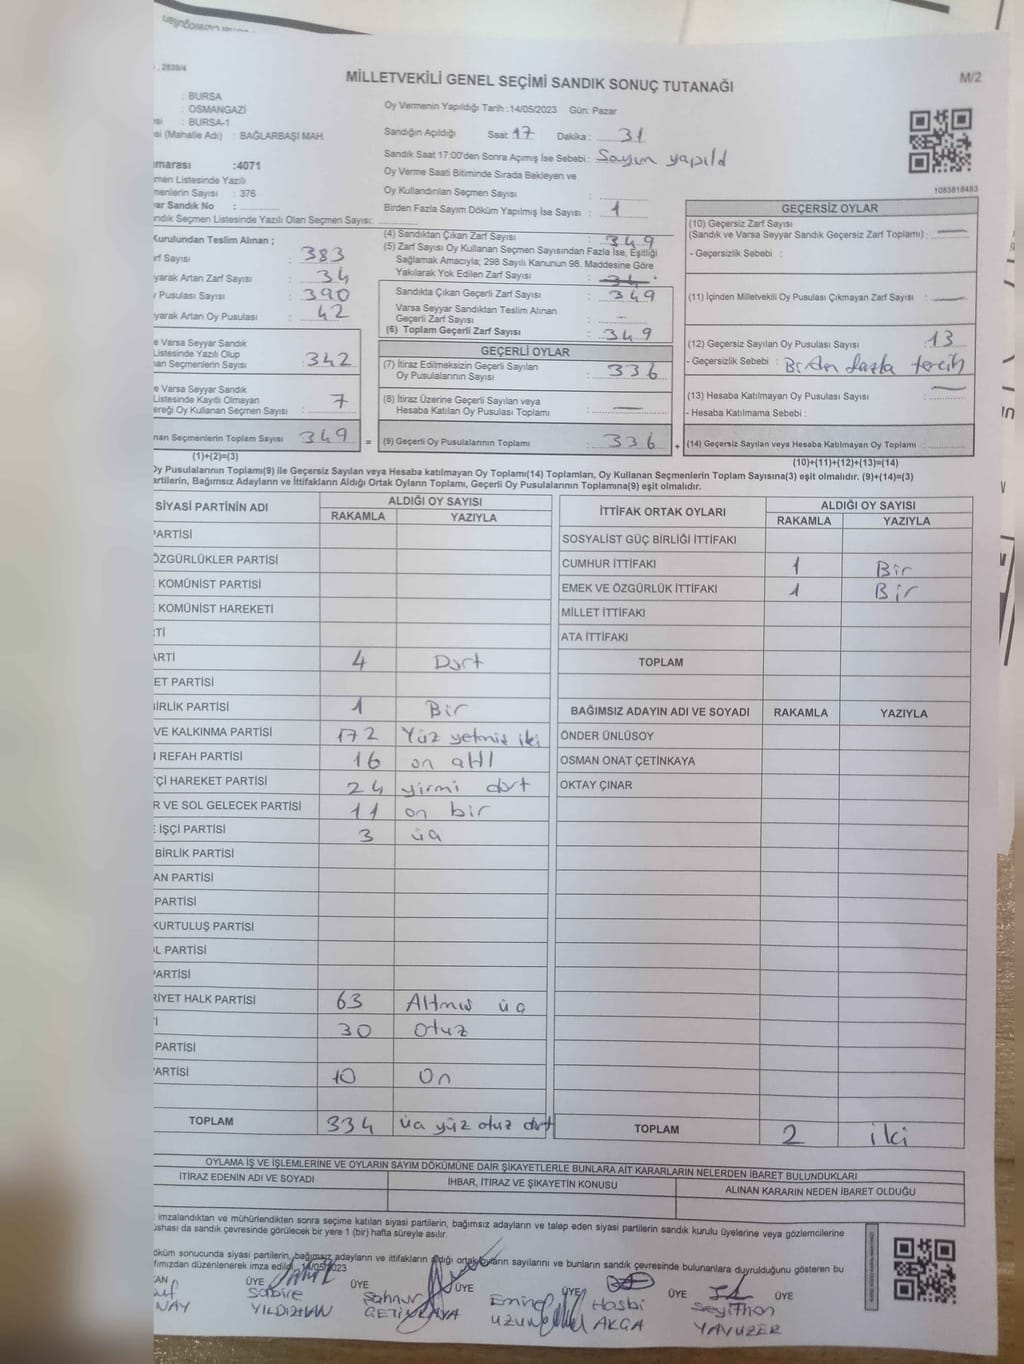 , 2839/4
MİLLETVEKİLİ GENEL SEÇİMİ SANDIK SONUÇ TUTANAĞI
M/2
: BURSA
: OSMANGAZİ
: BURSA-1
si (Mahalle Adı) : BAĞLARBAŞI MAH.
marası :4071
men Listesinde Yazılı
menlerin Sayısı : 376
ar Sandık No :
ndık Seçmen Listesinde Yazılı Olan Seçmen Sayısı:
Oy Vermenin Yapıldığı Tarih :14/05/2023 Gün: Pazar
Sandığın Açıldığı Saat: 17 Dakika : 31
Sandık Saat 17:00'den Sonra Açımış İse Sebebi : Sayım yapıld
Oy Verme Saati Bitiminde Sırada Bekleyen ve
Oy Kullandırılan Seçmen Sayısı :
Birden Fazla Sayım Döküm Yapılmış İse Sayısı : 1
1083818483
Kurulundan Teslim Alınan ;
rf Sayısı : 383
yarak Artan Zarf Sayısı : 34
y Pusulası Sayısı : 390
yarak Artan Oy Pusulası : 42
e Varsa Seyyar Sandık
Listesinde Yazılı Olup
nan Seçmenlerin Sayısı : 342
e Varsa Seyyar Sandık
Listesinde Kayıtlı Olmayan
ereği Oy Kullanan Seçmen Sayısı : 7
nan Seçmenlerin Toplam Sayısı 349 =
(1)+(2)=(3)
(4) Sandıktan Çıkan Zarf Sayısı : 349
(5) Zarf Sayısı Oy Kullanan Seçmen Sayısından Fazla İse, Eşitliği
Sağlamak Amacıyla; 298 Sayılı Kanunun 98. Maddesine Göre
Yakılarak Yok Edilen Zarf Sayısı : 34
Sandıkta Çıkan Geçerli Zarf Sayısı : 349
Varsa Seyyar Sandıktan Teslim Alınan
Geçerli Zarf Sayısı : —
(6) Toplam Geçerli Zarf Sayısı : 349
GEÇERLİ OYLAR
(7) İtiraz Edilmeksizin Geçerli Sayılan
Oy Pusulalarının Sayısı : 336
(8) İtiraz Üzerine Geçerli Sayılan veya
Hesaba Katılan Oy Pusulası Toplamı : —
(9) Geçerli Oy Pusulalarının Toplamı : 336 +
GEÇERSİZ OYLAR
(10) Geçersiz Zarf Sayısı
(Sandık ve Varsa Seyyar Sandık Geçersiz Zarf Toplamı) : —
- Geçersizlik Sebebi :
(11) İçinden Milletvekili Oy Pusulası Çıkmayan Zarf Sayısı : —
(12) Geçersiz Sayılan Oy Pusulası Sayısı : 13
- Geçersizlik Sebebi : Birden fazla tercih
(13) Hesaba Katılmayan Oy Pusulası Sayısı : —
- Hesaba Katılmama Sebebi :
(14) Geçersiz Sayılan veya Hesaba Katılmayan Oy Pusulası Toplamı :
(10)+(11)+(12)+(13)=(14)
Oy Pusulalarının Toplamı(9) ile Geçersiz Sayılan veya Hesaba katılmayan Oy Toplamı(14) Toplamları, Oy Kullanan Seçmenlerin Toplam Sayısına(3) eşit olmalıdır. (9)+(14)=(3)
artilerin, Bağımsız Adayların ve İttifakların Aldığı Ortak Oyların Toplamı, Geçerli Oy Pusulalarının Toplamına(9) eşit olmalıdır.
SİYASİ PARTİNİN ADI ALDIĞI OY SAYISI
RAKAMLA YAZIYLA
PARTİSİ
ÖZGÜRLÜKLER PARTİSİ
KOMÜNİST PARTİSİ
KOMÜNİST HAREKETİ
Tİ
ARTİ 4 Dört
ET PARTİSİ
BİRLİK PARTİSİ 1 Bir
VE KALKINMA PARTİSİ 172 Yüz yetmiş iki
REFAH PARTİSİ 16 on altı
Çİ HAREKET PARTİSİ 24 yirmi dört
R VE SOL GELECEK PARTİSİ 11 on bir
İŞÇİ PARTİSİ 3 üç
BİRLİK PARTİSİ
AN PARTİSİ
PARTİSİ
KURTULUŞ PARTİSİ
L PARTİSİ
PARTİSİ
RİYET HALK PARTİSİ 63 Altmış üç
İ 30 otuz
PARTİSİ
PARTİSİ 10 On
TOPLAM 334 üç yüz otuz dört
İTTİFAK ORTAK OYLARI ALDIĞI OY SAYISI
RAKAMLA YAZIYLA
SOSYALİST GÜÇ BİRLİĞİ İTTİFAKI
CUMHUR İTTİFAKI 1 Bir
EMEK VE ÖZGÜRLÜK İTTİFAKI 1 Bir
MİLLET İTTİFAKI
ATA İTTİFAKI
TOPLAM
BAĞIMSIZ ADAYIN ADI VE SOYADI RAKAMLA YAZIYLA
ÖNDER ÜNLÜSOY
OSMAN ONAT ÇETİNKAYA
OKTAY ÇINAR
TOPLAM 2 iki
OYLAMA İŞ VE İŞLEMLERİNE VE OYLARIN SAYIM DÖKÜMÜNE DAİR ŞİKAYETLERLE BUNLARA AİT KARARLARIN NELERDEN İBARET BULUNDUKLARI
İTİRAZ EDENİN ADI VE SOYADI İHBAR, İTİRAZ VE ŞİKAYETİN KONUSU ALINAN KARARIN NEDEN İBARET OLDUĞU
imzalandıktan ve mühürlendikten sonra seçime katılan siyasi partilerin, bağımsız adayların ve talep eden siyasi partilerin sandık kurulu üyelerine veya gözlemcilerine
üshası da sandık çevresinde görülecek bir yere 1 (bir) hafta süreyle asılır.
öküm sonucunda siyasi partilerin, bağımsız adayların ve ittifakların aldığı ortak oyların sayılarını ve bunların sandık çevresinde bulunanlara duyrulduğunu gösteren bu
fımızdan düzenlenerek imza edildi. 14/05/2023
KAN ÜYE ÜYE ÜYE ÜYE ÜYE ÜYE
Sabire Şahnur Emine Hasbi Seyithan
NAY YILDIZHAN ÇETİNKAYA UZUN AKÇA YAVUZER